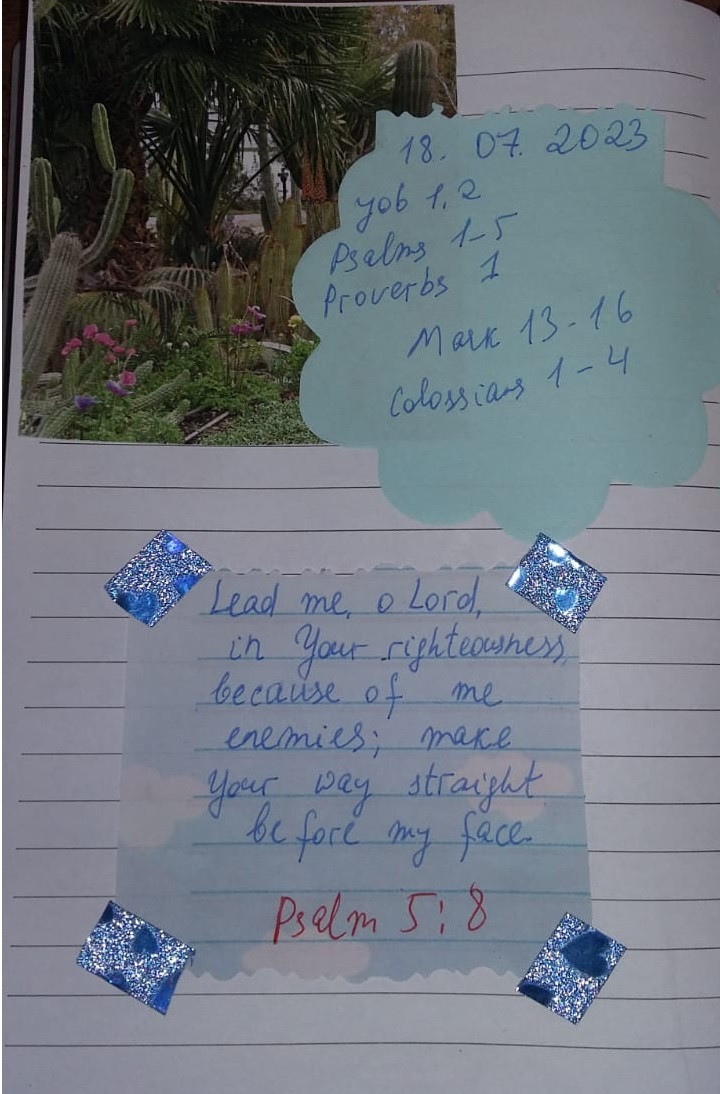 18. 07. 2023
yob 1,2
Psalms 1-5
Proverbs 1
Mark 13-16
Colossians 1-4
Lead me, o Lord,
in Your righteousness,
because of me
enemies; make
Your way straight
before my face.
Psalm 5:8